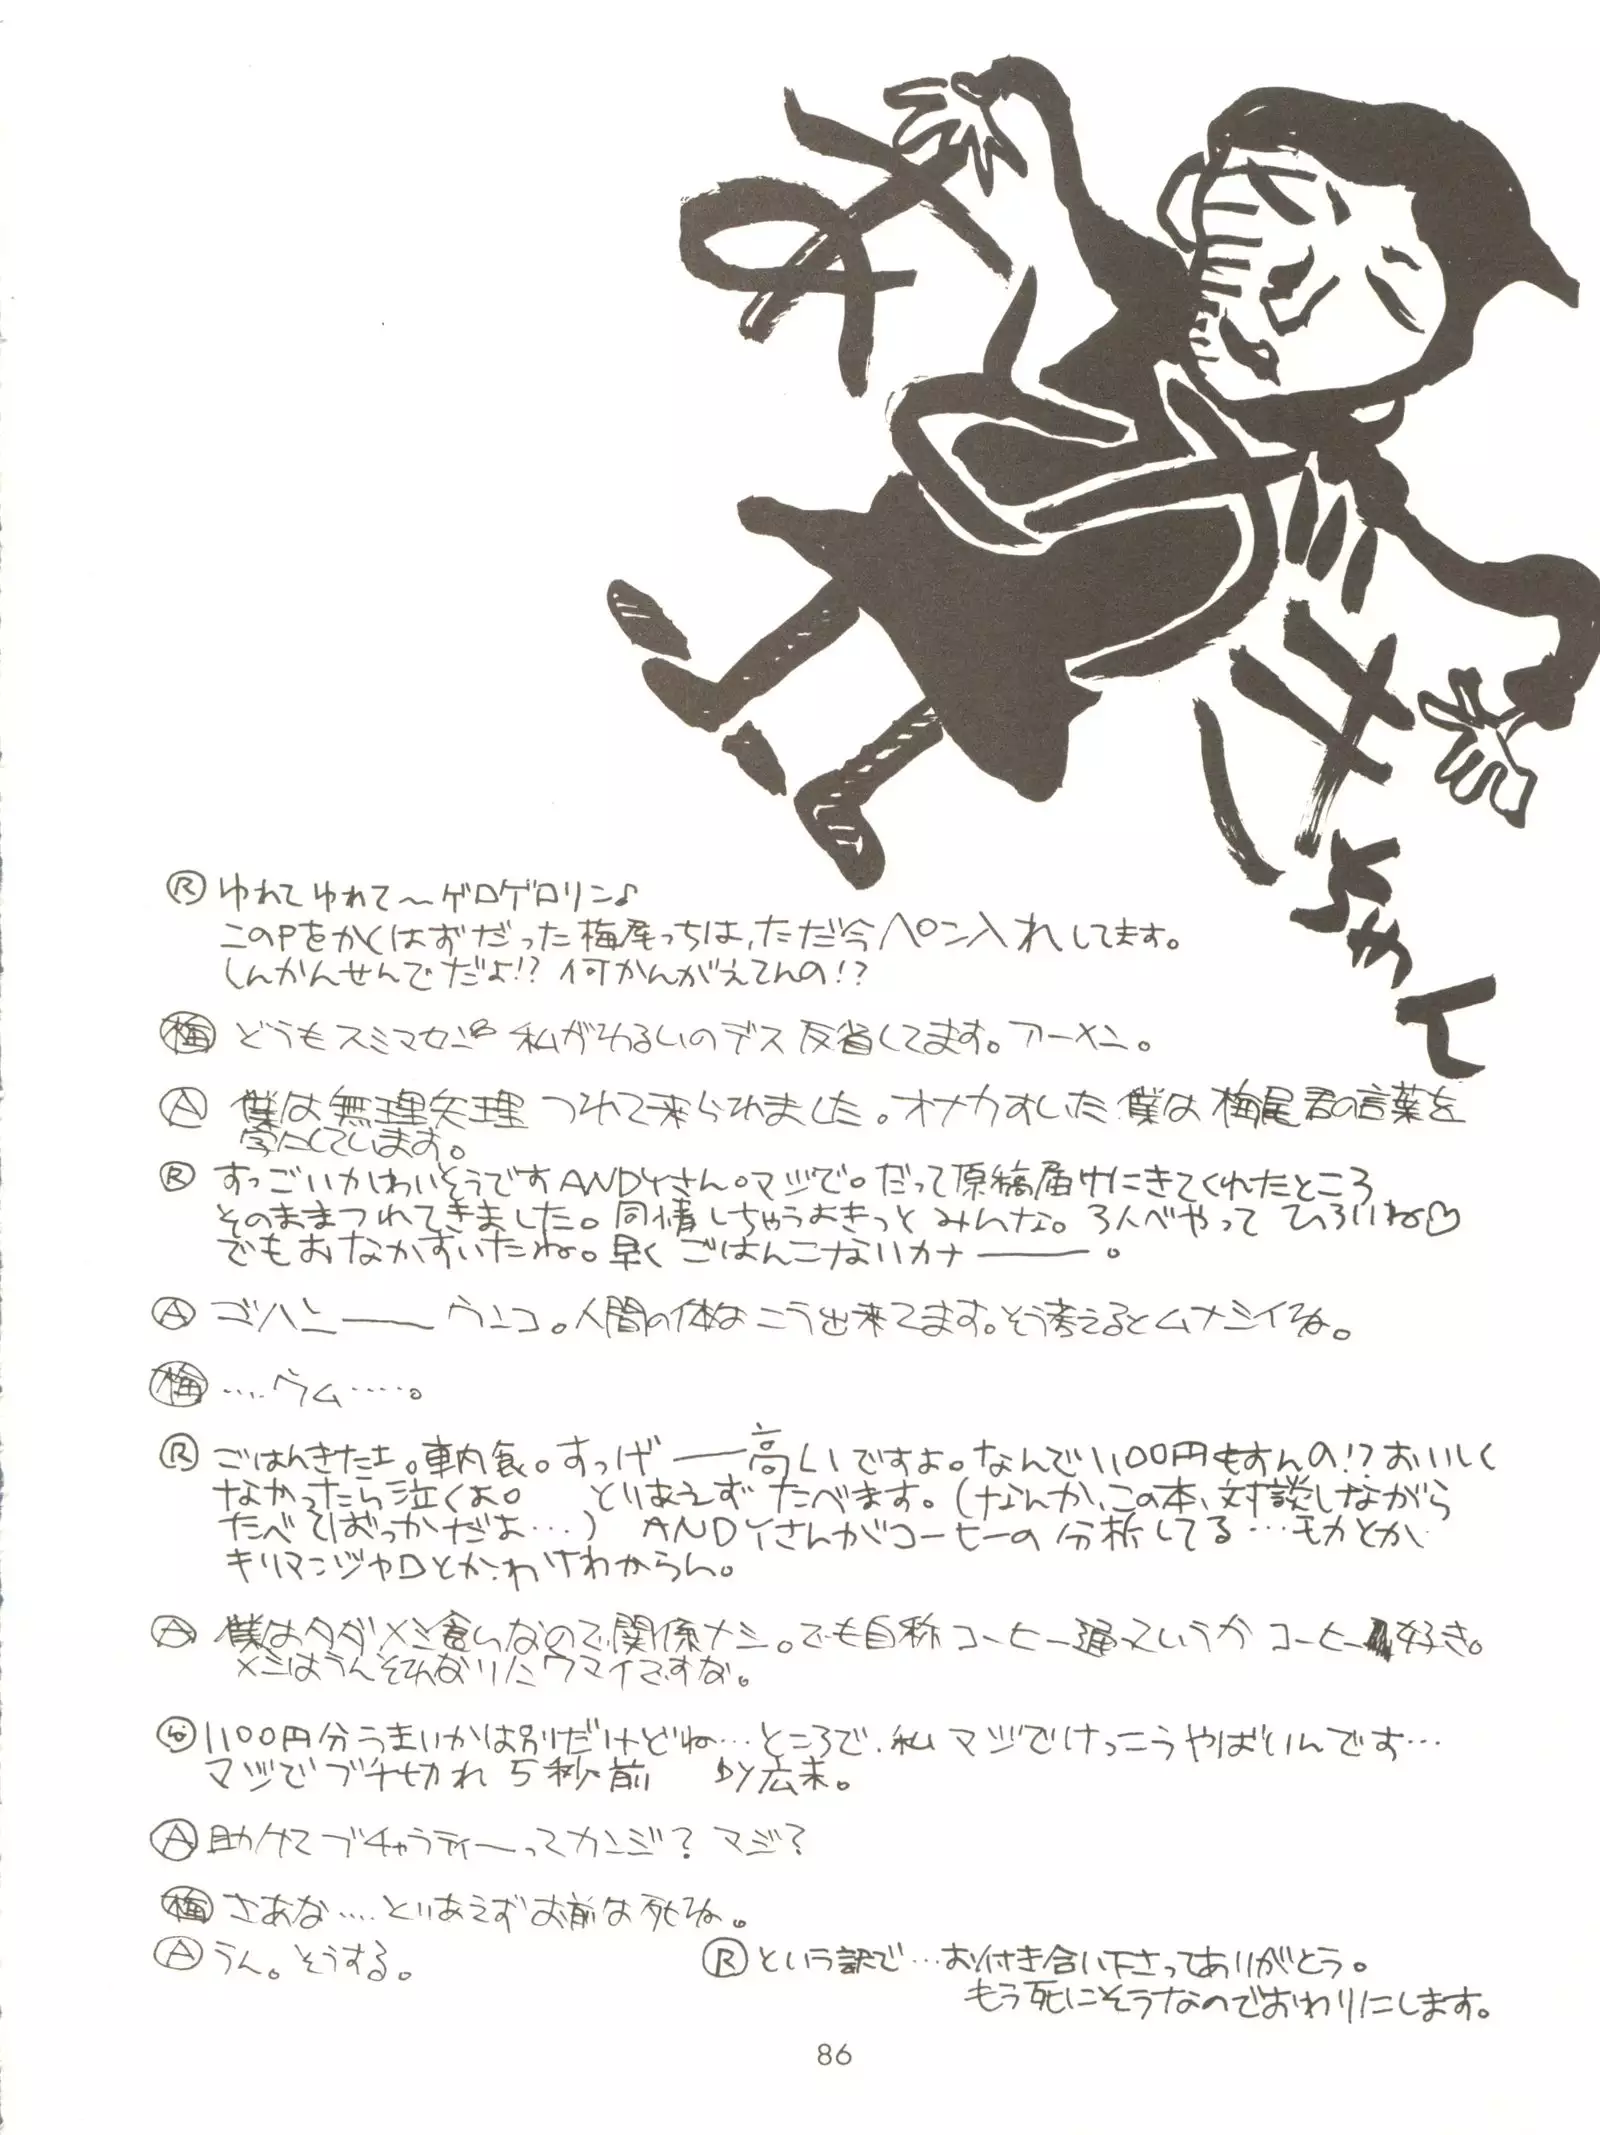 Ⓡ ゆれてゆれて〜ゲロゲロリン♪
このPをかくはずだった梅尾っちは、ただ今ペン入れしてます。
しんかんせんでだよ!? 何かんがえてんの!?
㊙梅 どうもスミマセン 私がわるいのデス 反省してます。アーメン。
Ⓐ 僕は無理矢理つれて来られました。オナカすいた僕は梅尾君の言葉を
字にしています。
Ⓡ すっごいかわいそうですANDYさん。マジで。だって原稿届けにきてくれたところ
そのままつれてきました。同情しちゃうよきっとみんな。3人べやってひろいね♡
でもおなかすいたね。早くごはんこないカナ――。
Ⓐ ゴハン――ウンコ。人間の体はこう出来てます。そう考えるとムナシイね。
梅 ‥‥ウム‥‥‥。
Ⓡ ごはんきたエ。車内食。すっげ――高いですよ。なんで1,100円もすんの!? おいしく
なかったら泣くよ。 とりあえずたべます。(なんか、この本、対談しながら
たべてばっかだよ…) ANDYさんがコーヒーの分析してる…モカとか
キリマンジャロとか、わけわからん。
Ⓐ 僕はタダメシ食いなので関係ナシ。でも自称コーヒー通っていうかコーヒー好き。
メシはうんそれなりにウマイですな。
1100円分うまいかは別だけどね…ところで、私マジでけっこうやばいんです…
マジでブチ切れ5秒前 by広末。
Ⓐ 助けてブチャラティーってカンジ? マジ?
梅 さあな‥‥とりあえずお前は死ね。
Ⓐ うん。そうする。
Ⓡ という訳で…お付き合い下さってありがとう。
もう死にそうなのでおわりにします。
86